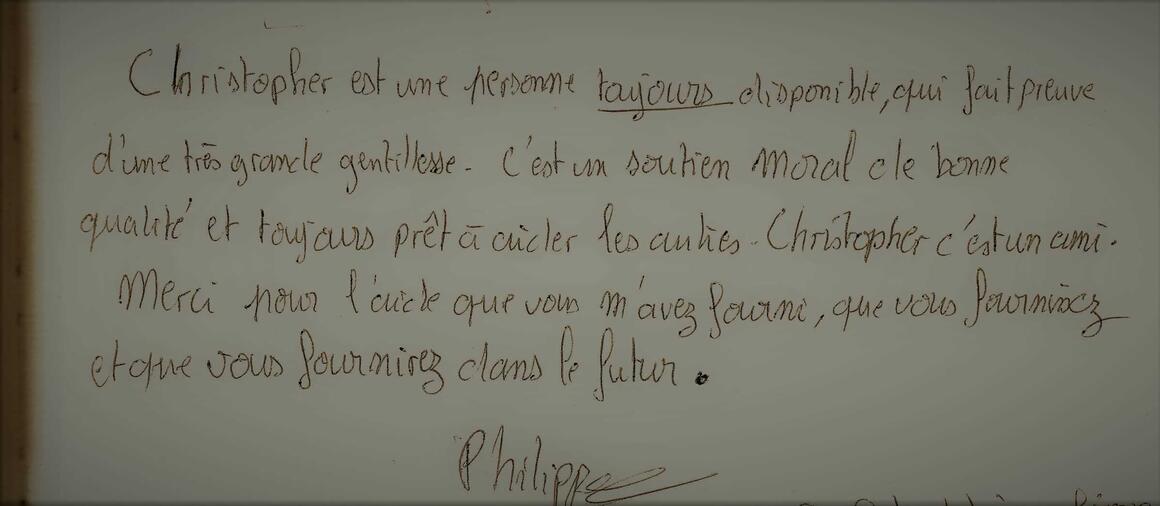 Christopher est une personne toujours disponible, qui fait preuve
d'une très grande gentillesse. C'est un soutien moral de bonne
qualité et toujours prêt à aider les autres. Christopher c'est un ami.
Merci pour l'aide que vous m'avez fourni, que vous fournissez
et que vous fournirez dans le futur.
Philippe